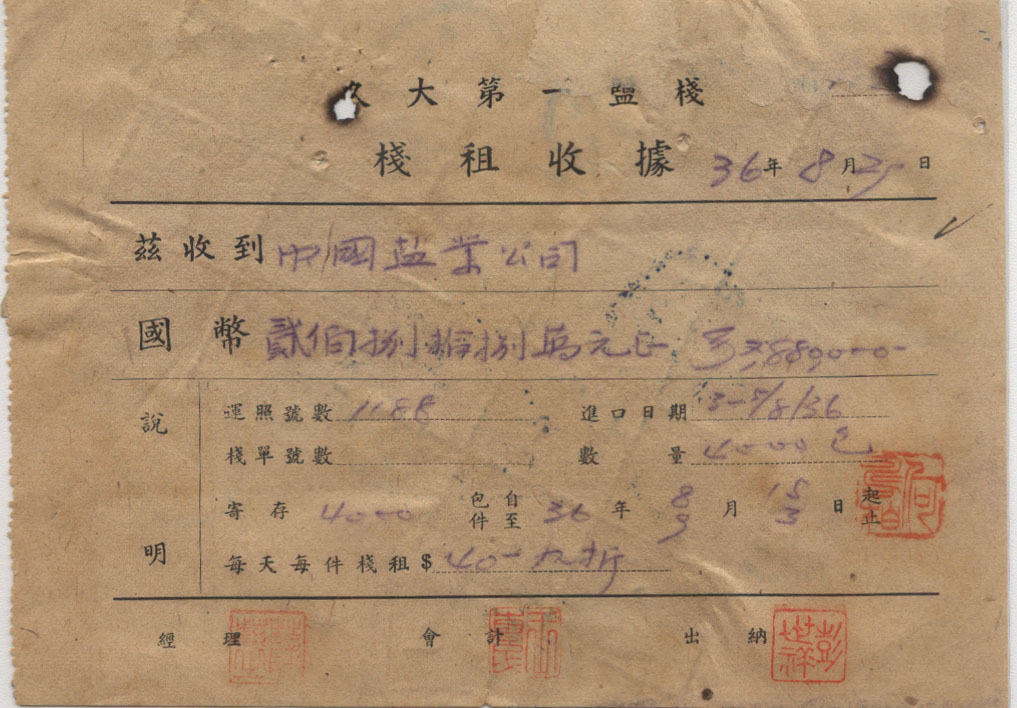 久大第一鹽棧
棧租收據 36年8月25日
茲收到 中國盐業公司
國幣 貳佰捌拾捌萬元正
說明
運照號數 1188
進口日期
棧單號數
數量 4000包
寄存 4000 包件 自至 36年 8 9 月 15 3 日 起止
每天每件棧租$ 40- 九折
經理 會計 出納 彭世祥